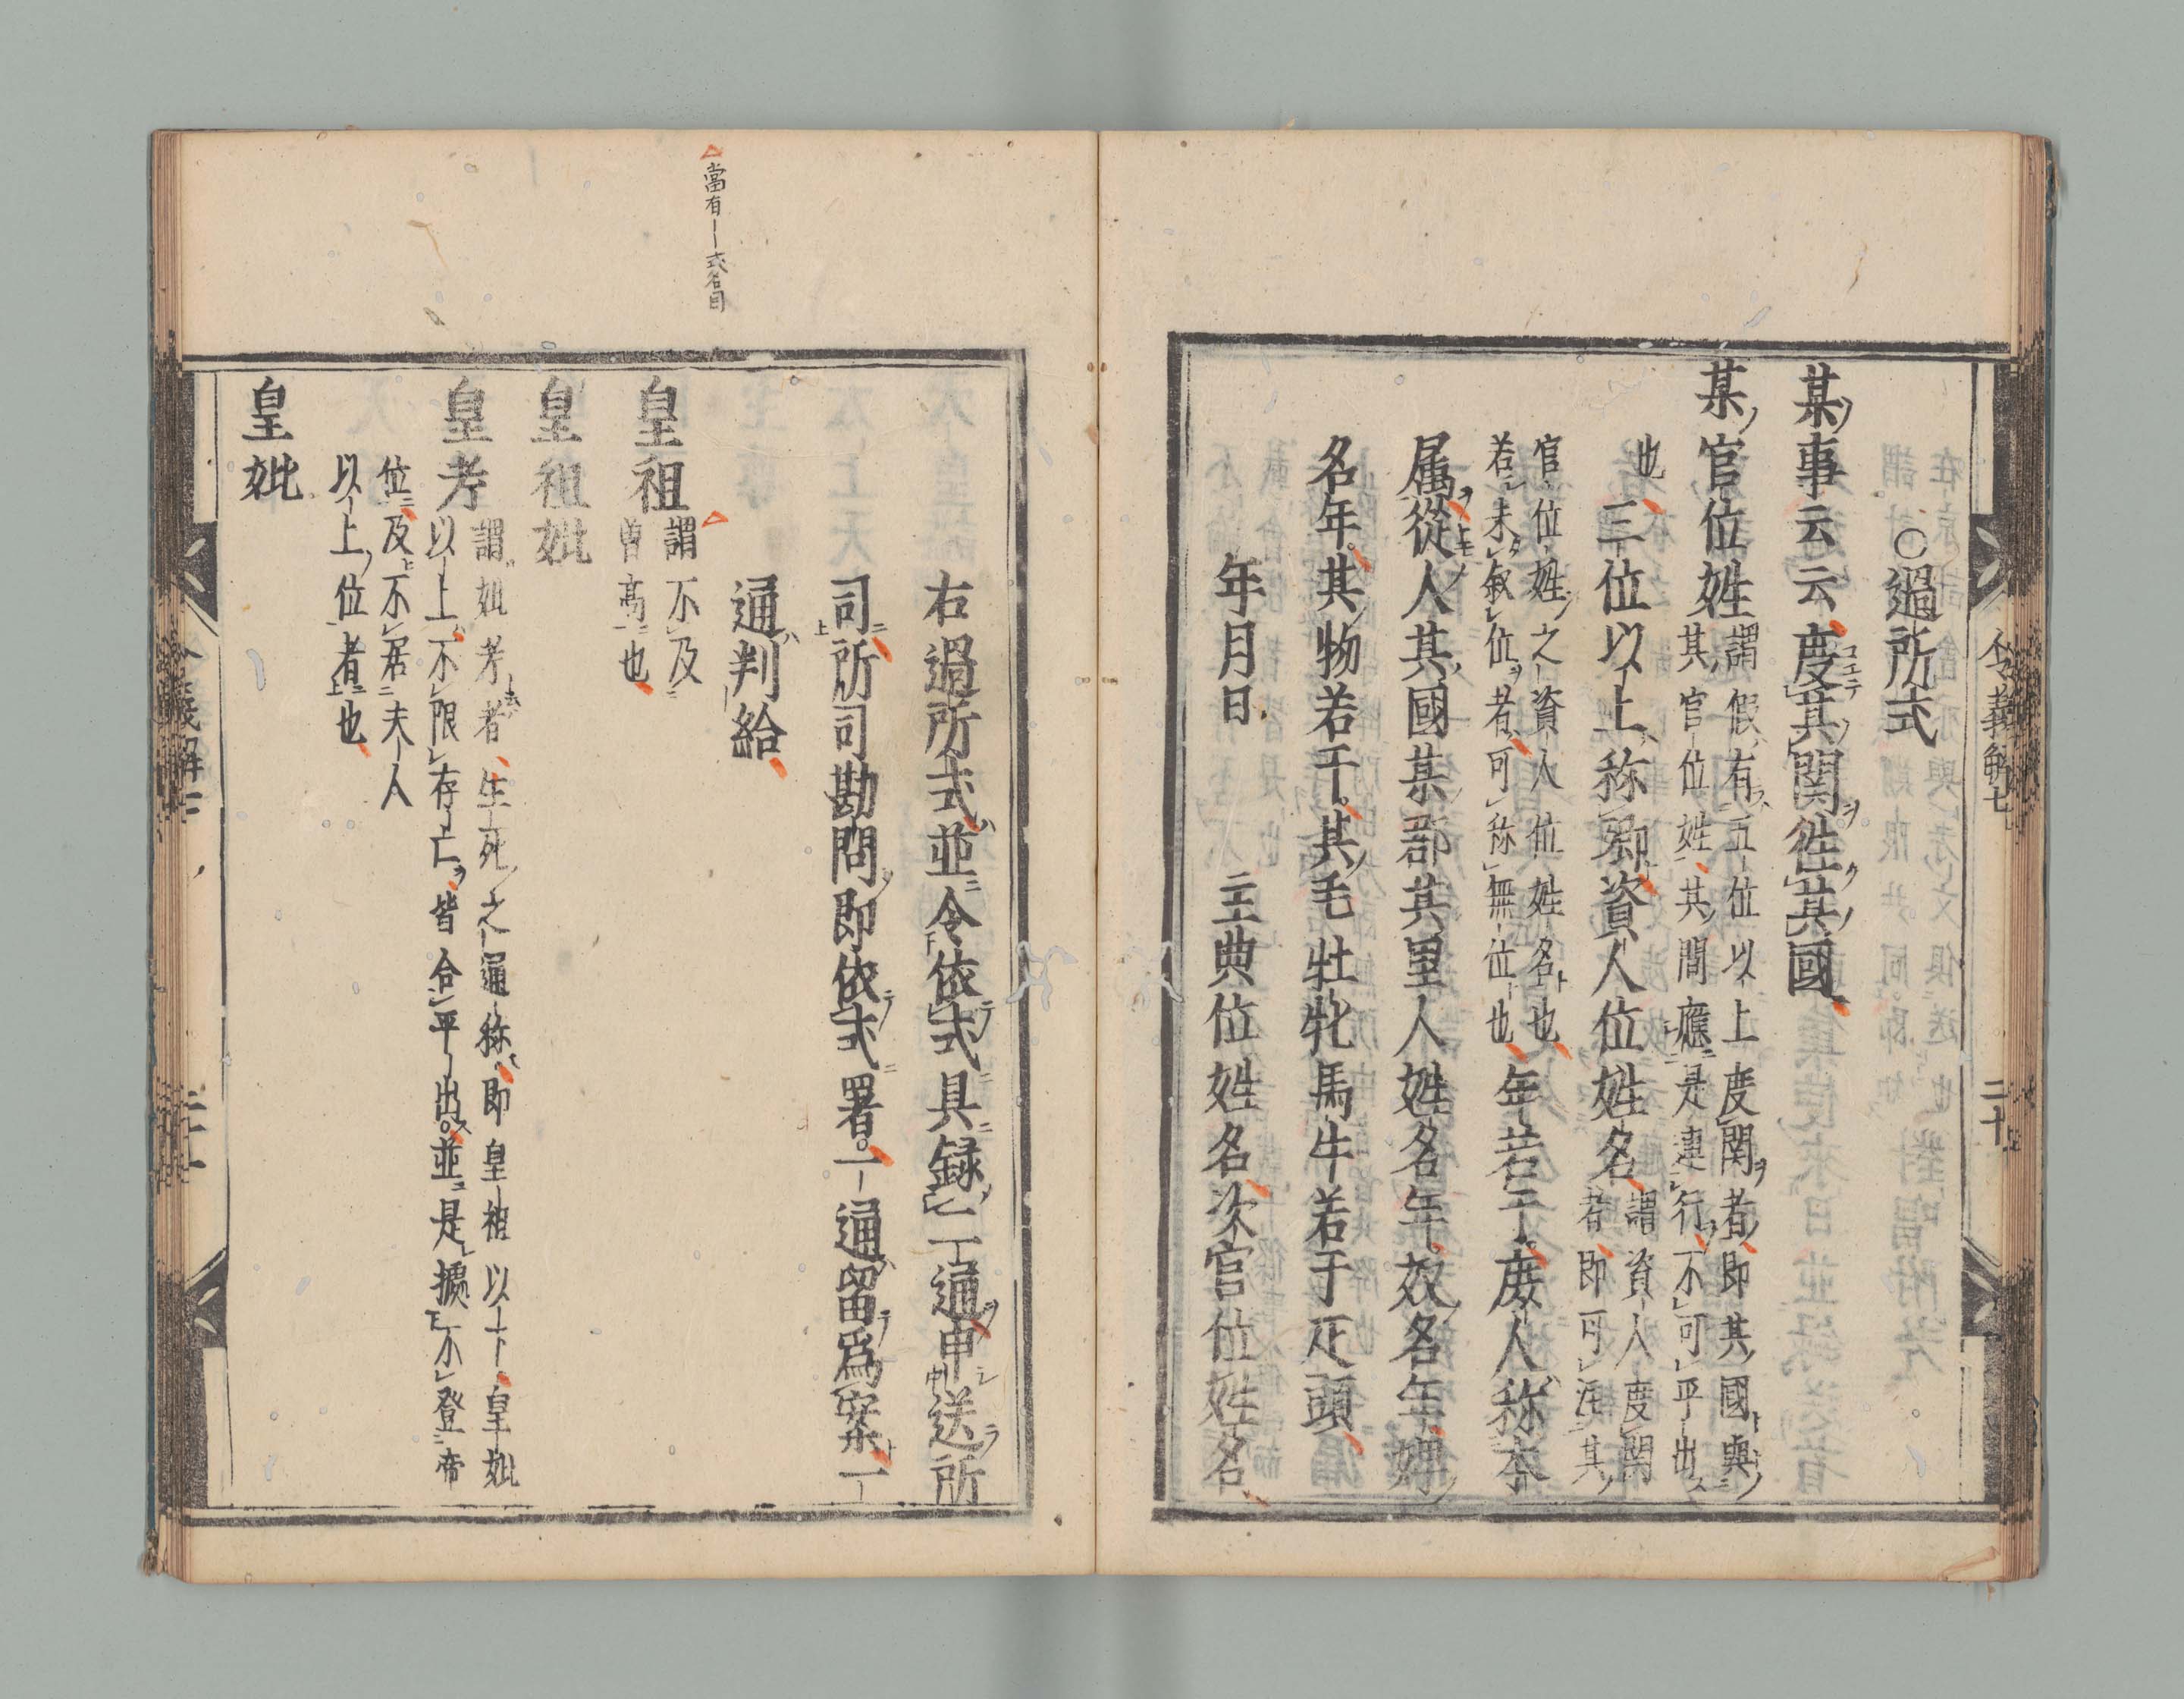 令義解七
二十
○過所式
某事云云度某関徃某国
某官位姓謂假有五位以上度関者即某國與
其官位姓其間應是連行不可平出
也三位以上称卿資人位姓名謂資人度関
者即可注其
官位姓之資人位姓名也
若未叙位者可称無位也年若干度人称本
属從人某國某郡某里人姓名年奴名年婢
名年其物若干其毛牡牝馬牛若干疋頭
年月日 主典位姓名次官位姓名
右過所式並令依式具録二通申送所
司所司勘問即依式署一通留爲案一
通判給
△當有一一式名目
皇祖謂不及
曽高也
皇祖妣
皇考謂妣考者生死之通称即皇祖以下皇妣
以上不限存亡皆合平出並是據不登帝
位及不居夫人
以上位者也
皇妣